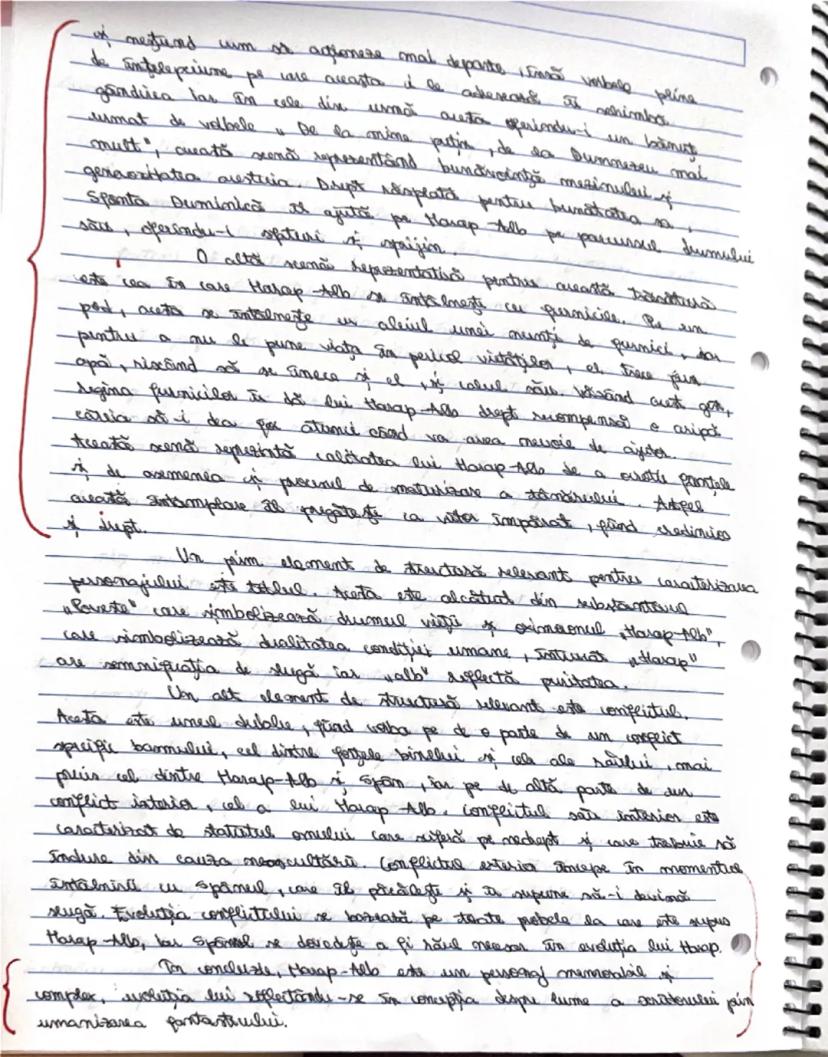 și neștiind cum să acționeze mai departe, însă vorbele pline
de înțelepciune pe care aceasta i le adresează îi schimbă
gândirea iar în cele din urmă acesta oferindu-i un bănuț
urmat de volbele „De la mine puțin, de la Dumnezeu mai
mult", această scenă reprezentând bunăvoință mezinului și
generozitatea acestuia. Drept răsplată pentru bunătatea sa,
Sfânta Duminică îl ajută pe Harap-Alb pe parcursul drumului
său, oferindu-i sfaturi și sprijin.
O altă scenă reprezentativă pentru această trăsătură
este cea în care Harap-Alb se întâlnește cu furnicile. Pe un
pod, acesta se întâlnește cu aleiul unei nunți de furnici, dar
pentru a nu le pune viața în pericol vietăților, el trece prin
apă, riscând să se înece și el, și calul său. Văzând acest gest,
regina furnicilor îi dă lui Harap-Alb drept recompensă o aripă
căreia să-i dea foc atunci când va avea nevoie de ajutor.
Această scenă reprezintă calitatea lui Harap-Alb de a ocroti ființele
și de asemenea și procesul de maturizare a tânărului. Astfel
această întamplare îl pregătește ca viitor împărat, fiind credincios
și drept.
Un prim element de structură relevant pentru caracterizarea
personajului este titlul. Acesta este alcătuit din substantivul
„Poveste" care simbolizează drumul vieții și oximoronul „Harap-Alb",
care simbolizează dualitatea condiției umane, întrucât „Harap"
are semnificația de slugă iar „alb" reflectă puritatea.
Un alt element de structură relevant este conflictul.
Acesta este unul dublu, fiind vorba pe de o parte de un conflict
specific basmului, cel dintre forțele binelui și cele ale răului, mai
precis cel dintre Harap-Alb și Spân, iar pe de altă parte de un
conflict interior, cel a lui Harap-Alb. Conflictul său interior este
caracterizat de statutul omului care suferă pe nedrept și care trebuie să
îndure din cauza neascultării. Conflictul exterior începe în momentul
întâlnirii cu Spânul, care îl păcălește și îl supune să-i devină
slugă. Evoluția conflictului se bazează pe toate probele la care este supus
Harap-Alb, iar Spânul se dovedește a fi răul necesar în evoluția lui Harap.
În concluzie, Harap-Alb este un personaj memorabil și
complex, evoluția lui reflectându-se în concepția despre lume a scriitorului prin
umanizarea fantasticului.